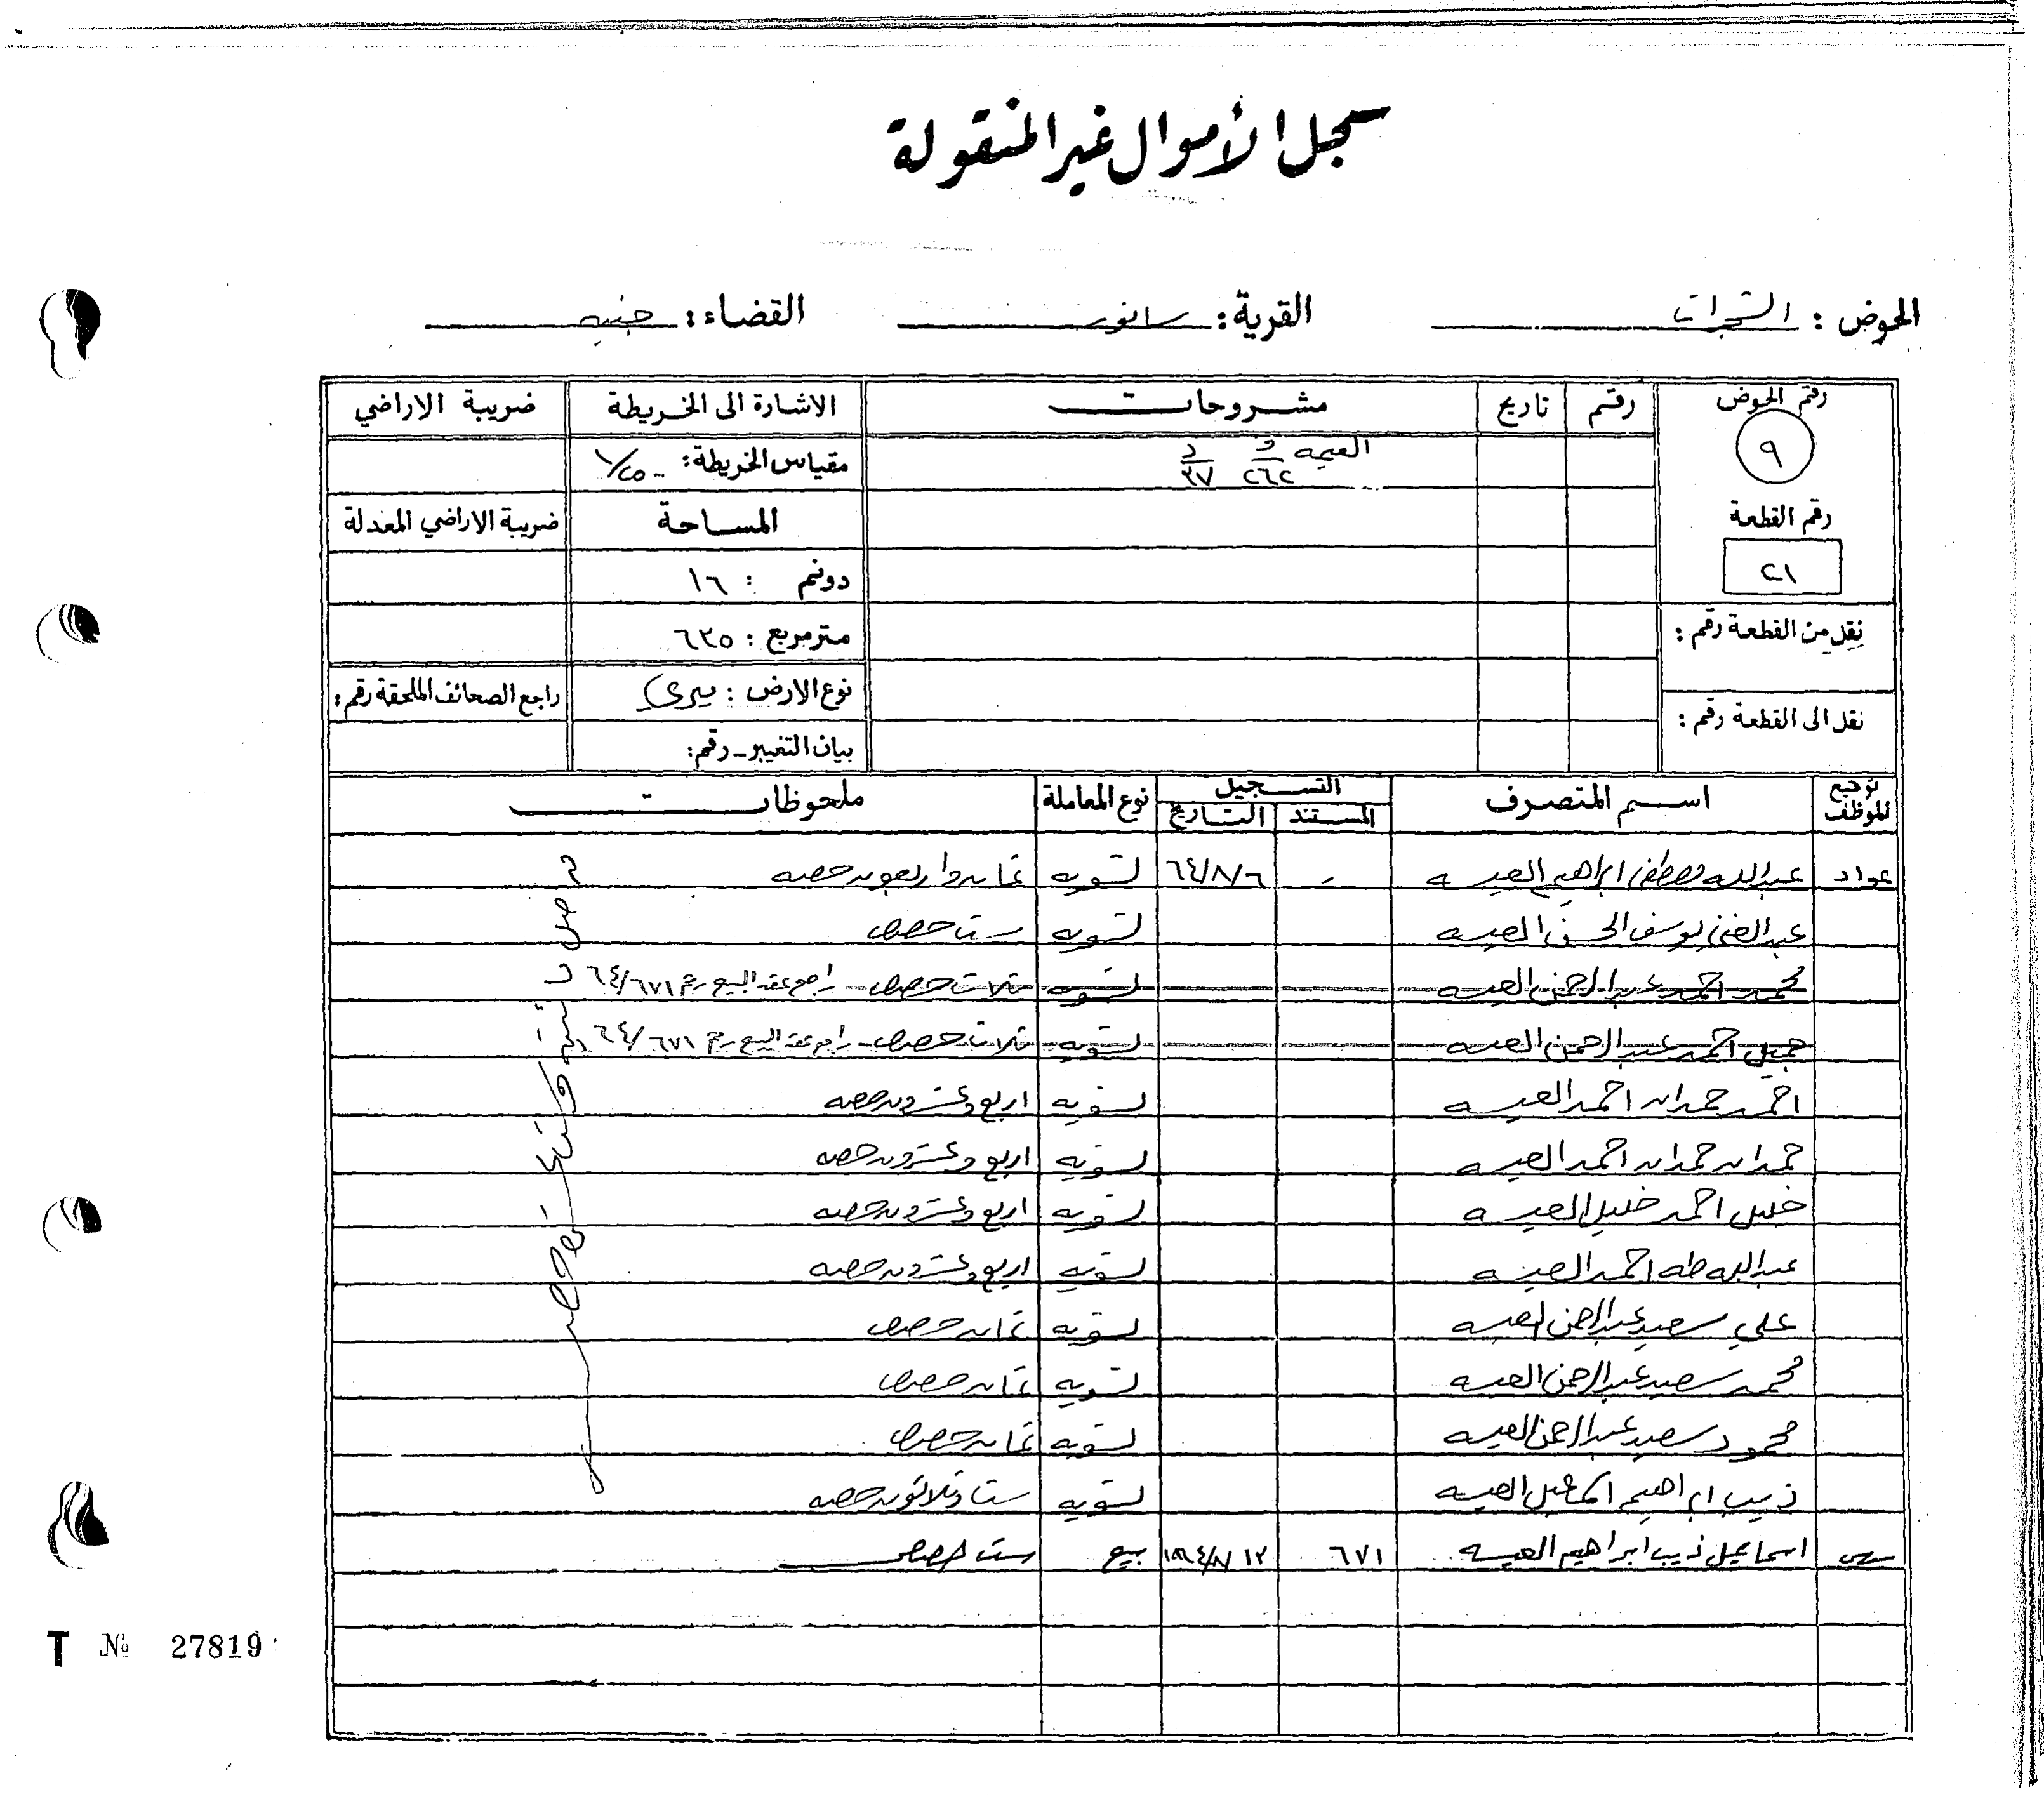 سجل الأموال غير المنقولة
الحوض : الشجرات القرية : سانور القضاء : جنين
رقم الحوض رقم تاريخ مشروحات الاشارة الى الخريطة ضريبة الاراضي
٩ القيمة و ٢٦٢ د ٣٧ مقياس الخريطة :
رقم القطعة المساحة ضريبة الاراضي المعدلة
٢١ دونم : ١٦
نقل من القطعة رقم : متر مربع : ٦٣٥
نوع الارض : ميري راجع الصحائف الملحقة رقم :
نقل الى القطعة رقم : بيان التغيير - رقم :
توقيع الموظف اسم المتصرف التسجيل نوع المعاملة ملحوظات
المستند التاريخ
عواد عبدالله مصطفى ابراهيم العيسه ٦٤/٨/٦ تسويه ثمان واربعون حصه
عبدالغني يوسف الحسن العيسه تسويه ست حصص
محمد احمد عبدالرحمن العيسه تسويه ثلاث حصص - راجع عقد البيع رقم ٦٤/٦٧١
جميل احمد عبدالرحمن العيسه تسويه ثلاث حصص - راجع عقد البيع رقم ٦٤/٦٧١
احمد حمدان احمد العيسه تسويه اربع وعشرون حصه
حمدان حمدان احمد العيسه تسويه اربع وعشرون حصه
خليل احمد خليل العيسه تسويه اربع وعشرون حصه
عبدالله طه احمد العيسه تسويه اربع وعشرون حصه
علي سعيد عبدالرحمن العيسه تسويه ثمان حصص
محمد سعيد عبدالرحمن العيسه تسويه ثمان حصص
محمود سعيد عبدالرحمن العيسه تسويه ثمان حصص
ذيب ابراهيم اسماعيل العيسه تسويه ست وثلاثون حصه
اسماعيل ذيب ابراهيم العيسه ٦٧١ ١٩٦٤/٨/١٢ بيع ست حصص
T № 27819